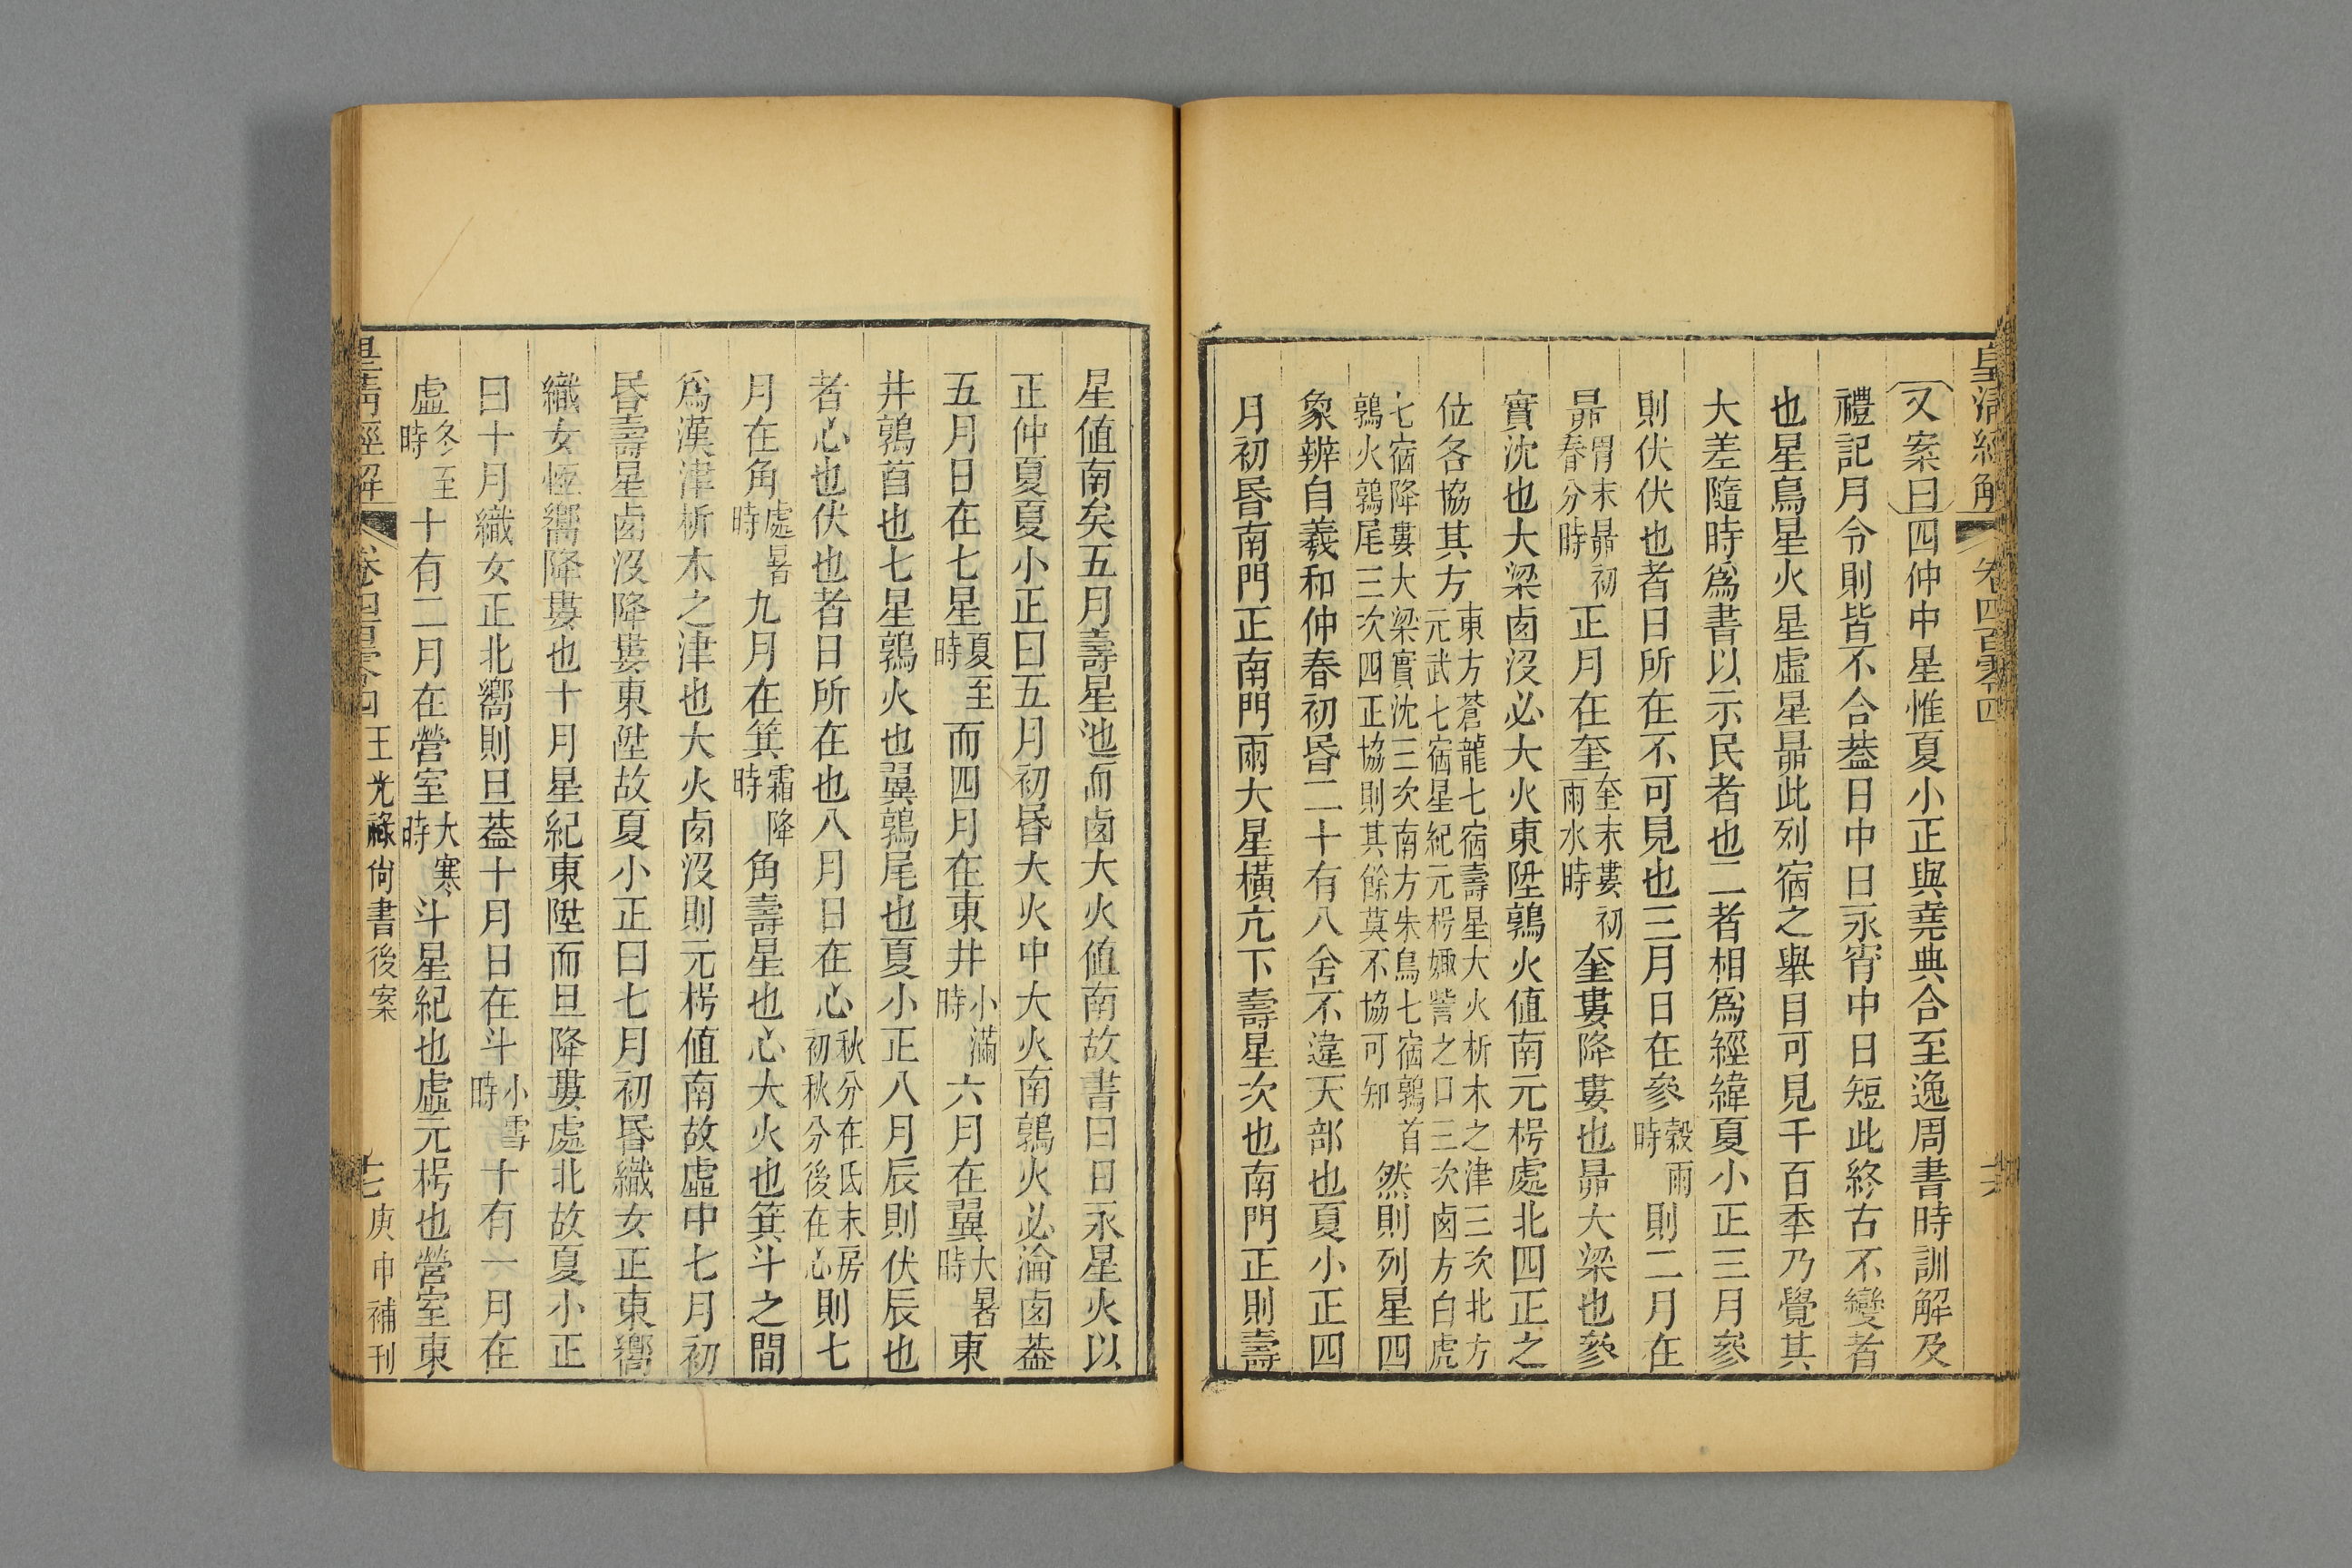 皇清經解 卷四百零四 十六
又案曰四仲中星惟夏小正與堯典合至逸周書時訓解及
禮記月令則皆不合葢日中日永宵中日短此終古不變者
也星鳥星火星虛星昴此列宿之舉目可見千百秊乃覺其
大差隨時爲書以示民者也二者相爲經緯夏小正三月參
則伏伏也者日所在不可見也三月日在參穀雨時則二月在
昴胃末昴初春分時正月在奎奎末婁初雨水時奎婁降婁也昴大梁也參
實沈也大梁卤沒必大火東陞鶉火值南元枵處北四正之
位各協其方東方蒼龍七宿壽星大火析木之津三次北方元武七宿星紀元枵娵訾之口三次卤方白虎
七宿降婁大梁實沈三次南方朱鳥七宿鶉首鶉火鶉尾三次四正協則其餘莫不協可知然則列星四
象辨自羲和仲春初昏二十有八舍不違天部也夏小正四
月初昏南門正南門兩大星橫亢下壽星次也南門正則壽
星值南矣五月壽星池而卤大火值南故書曰日永星火以
正仲夏夏小正曰五月初昏大火中大火南鶉火必淪卤葢
五月日在七星夏至時而四月在東井小滿時六月在翼大暑時東
井鶉首也七星鶉火也翼鶉尾也夏小正八月辰則伏辰也
者心也伏也者日所在也八月日在心秋分在氐末房初秋分後在心則七
月在角處暑時九月在箕霜降時角壽星也心大火也箕斗之間
爲漢津析木之津也大火卤沒則元枵值南故虛中七月初
昏壽星卤沒降婁東陞故夏小正曰七月初昏織女正東嚮
織女恆嚮降婁也十月星紀東陞而旦降婁處北故夏小正
曰十月織女正北嚮則旦葢十月日在斗小雪時十有一月在
虛冬至時十有二月在營室大寒時斗星紀也虛元枵也營室東
皇清經解 卷四百零四 王光祿尚書後案 十七 庚申補刊